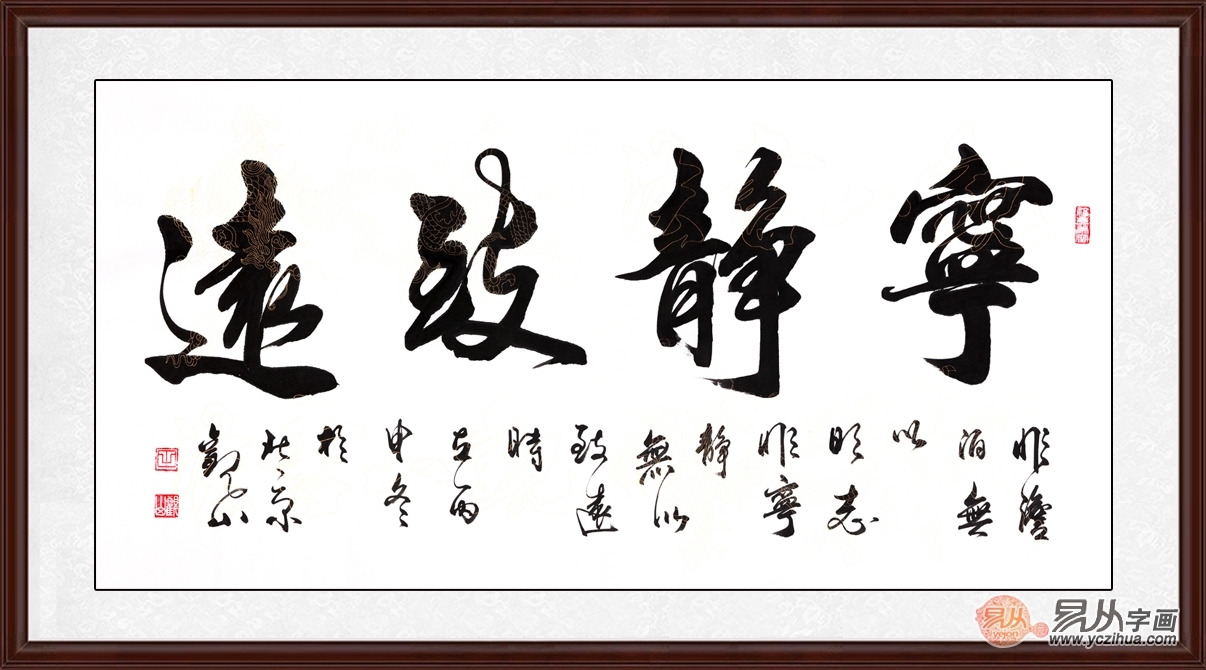 寧靜致遠
非澹
泊無
以
明志
非寧
靜
無以
致遠
時
在丙
申冬
於
北京
觀山
易从字画
yejon
www.yczihua.com